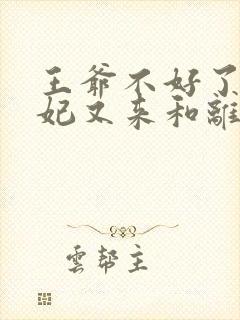 王爺不好了
妃又来和離
雲幫主